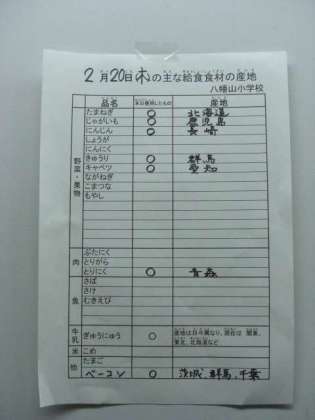 2月20日(木)の主な給食食材の産地
八幡山小学校
品名 本日使用したもの 産地
野菜・果物
たまねぎ ○ 北海道
じゃがいも ○ 鹿児島
にんじん ○ 長崎
しょうが
にんにく
きゅうり ○ 群馬
キャベツ ○ 愛知
ながねぎ
こまつな
もやし
肉
ぶたにく
とりがら
とりにく ○ 青森
魚
さば
さけ
むきえび
牛乳 ぎゅうにゅう ○ 産地は日々異なり、現在は 関東、
東北、北海道など
米 こめ
他
たまご
ベーコン ○ 茨城、群馬、千葉